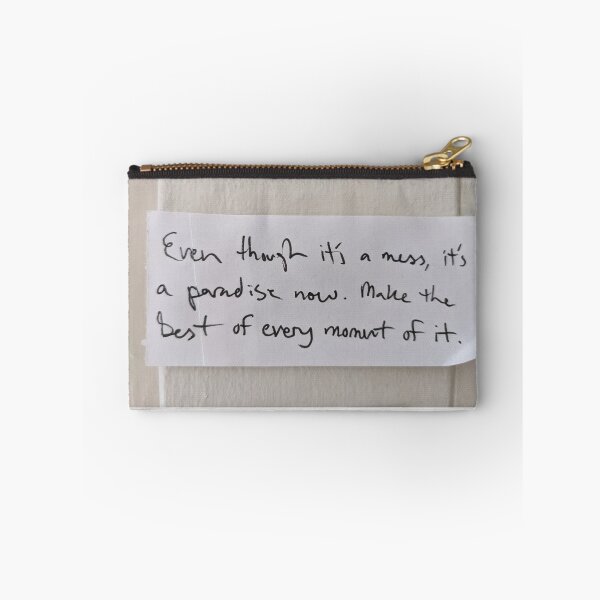 Even though it's a mess, it's
a paradise now. Make the
best of every moment of it.